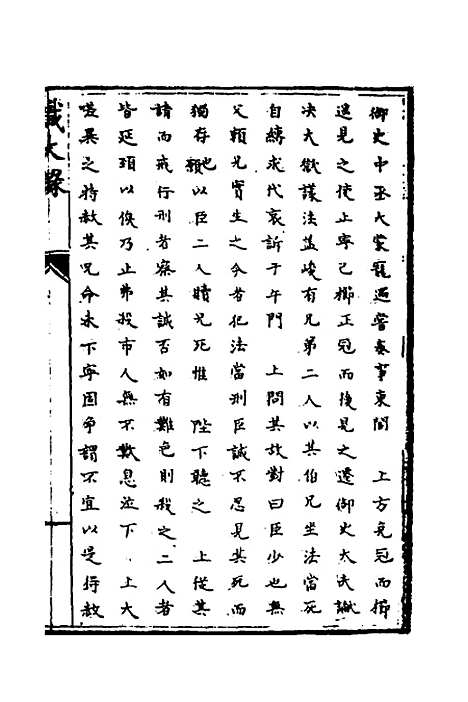 御史中丞大蒙寵遇嘗奏事東閣　上方免冠而櫛
遥見之使止寧已櫛正冠而後見之遷御史大夫讞
决大獄議法益峻有兄弟二人以其伯兄坐法當死
自縛求代哀訴于午門　上問其故對曰臣少也無
父賴兄實生之今者犯法當刑臣誠不忍見其死而
獨存也願以臣二人贖兄死惟　陛下聽之　上從其
請而戒行刑者察其誠否如有難色則殺之二人者
皆延頸以俟乃止弗殺市人無不歎息泣下　上大
嗟異之特赦其兄命未下寧固争謂不宜以是得赦
識大錄